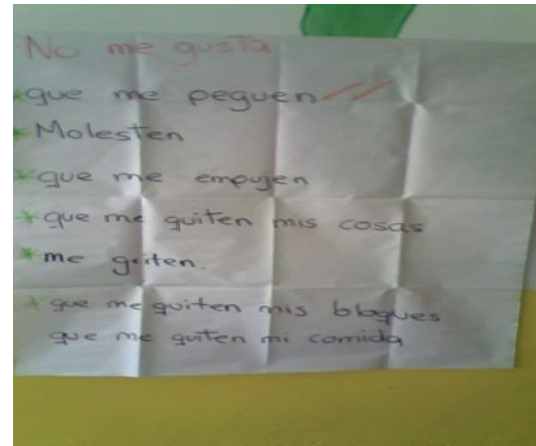 No me gusta
* que me peguen //
* Molesten
* que me empujen
* que me quiten mis cosas
* me griten.
* que me quiten mis bloques
que me quiten mi comida